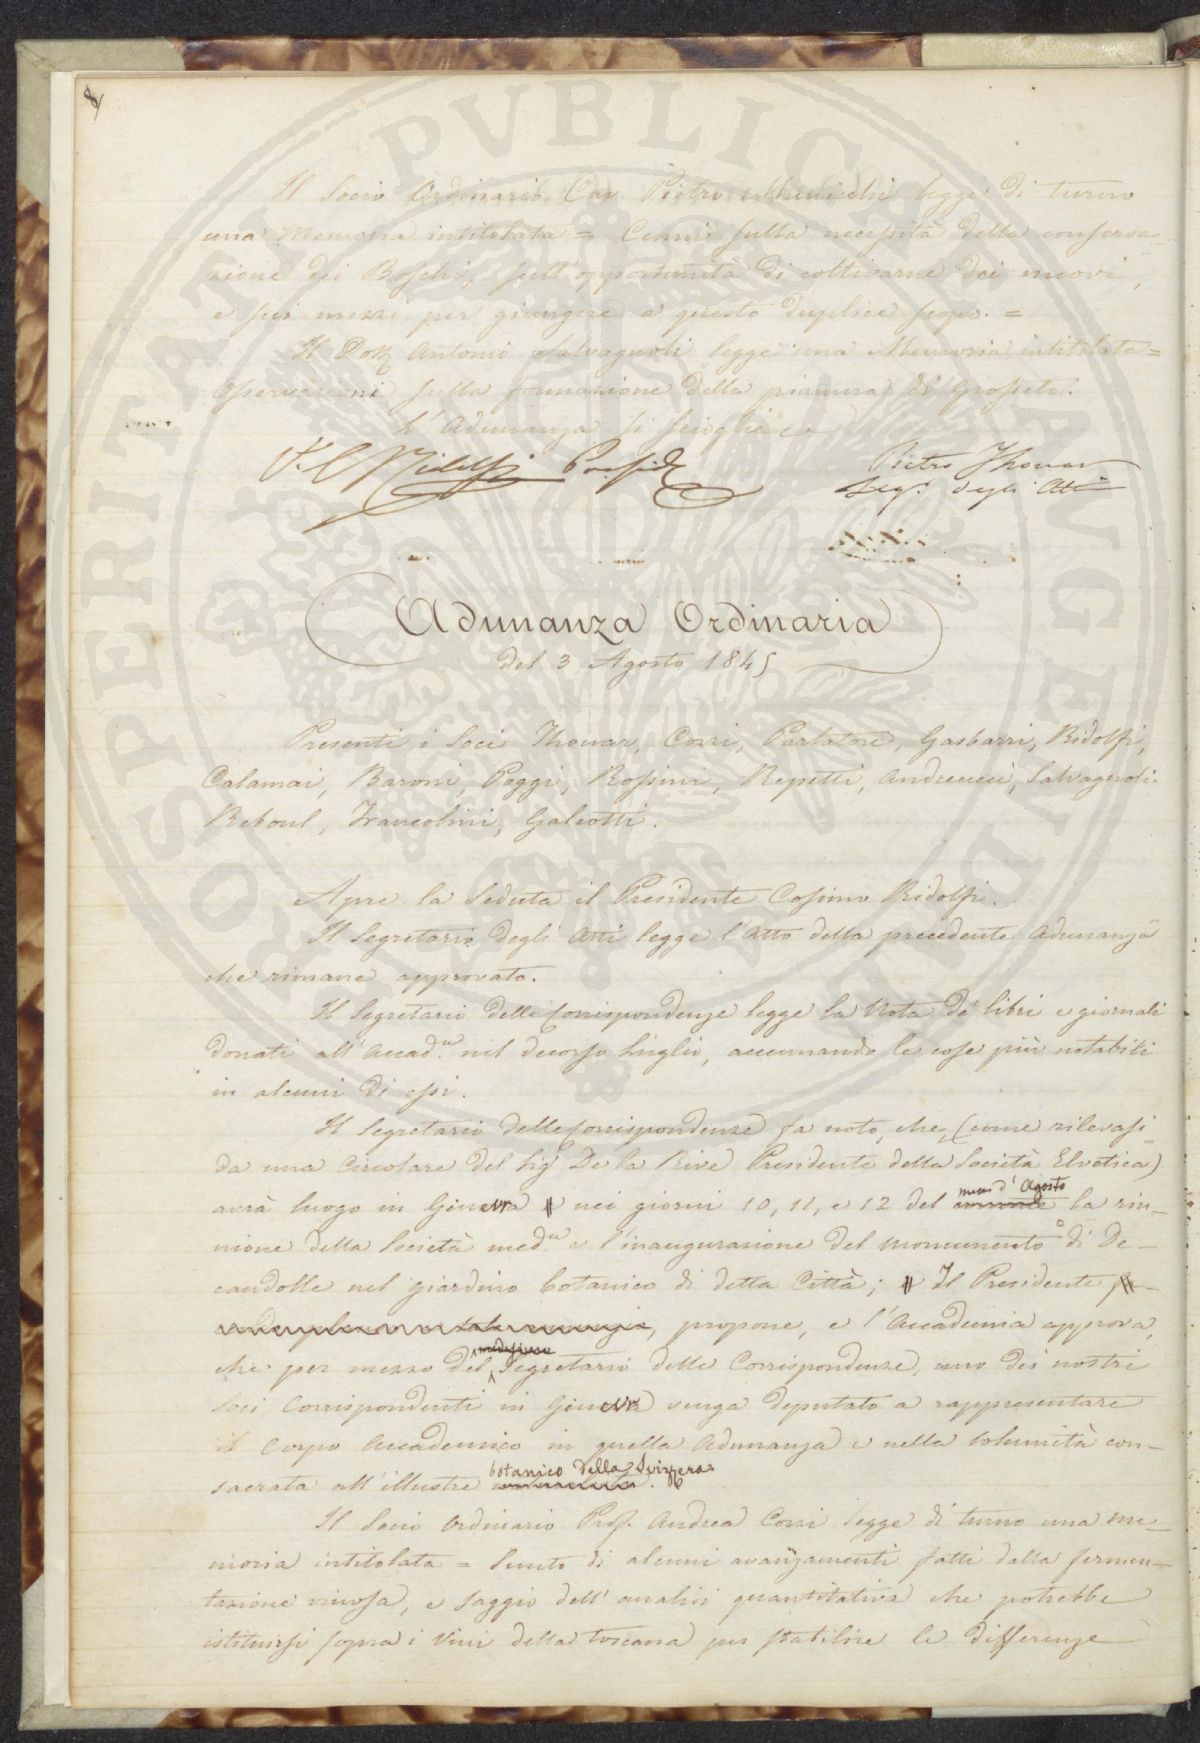 8/
Il Socio Ordinario Cav. Pietro Municchi legge di turno
una Memoria intitolata = Cenni sulla necessità della conserva-
zione dei Boschi, sull'opportunità di coltivarne dei nuovi,
e sui mezzi per giungere a questo duplice scopo. =
Il Dott. Antonio Salvagnoli legge una Memoria intitolata =
Osservazioni sulla formazione della pianura di Grosseto.
L'Adunanza si scioglie
V. C. Ridolfi Presid.
Pietro Thouar
Seg.º degli Atti
Adunanza Ordinaria
del 3 Agosto 1845
Presenti i Soci Thouar, Cozzi, Parlatore, Gasbarri, Ridolfi,
Calamai, Baroni, Poggi, Rossini, Repetti, Andreucci, Salvagnoli
Reboul, Francolini, Galeotti.
Apre la Seduta il Presidente Cosimo Ridolfi.
Il Segretario degli Atti legge l'Atto della precedente Adunanza
che rimane approvato.
Il Segretario delle Corrispondenze legge la Nota de' libri e giornali
donati all'Accad.ª nel decorso Luglio, accennando le cose più notabili
in alcuni di essi.
Il Segretario delle Corrispondenze fa noto, che, (come rilevasi
da una Circolare del Sig. De la Rive Presidente della Società Elvetica)
avrà luogo in Ginevra nei giorni 10, 11, e 12 del mese d'Agosto la riu-
nione della Società med.ª e l'inaugurazione del monumento di De-
candolle nel giardino botanico di detta Città; Il Presidente
propone, e l'Accademia approva,
che per mezzo del medesimo Segretario delle Corrispondenze, uno dei nostri
Soci Corrispondenti in Ginevra venga deputato a rappresentare
il Corpo Accademico in quella Adunanza e nella solennità con-
sacrata all'illustre botanico della Svizzera.
Il Socio Ordinario Prof. Andrea Cozzi legge di turno una Me-
moria intitolata = Sunto di alcuni avanzamenti fatti dalla fermen-
tazione vinosa, e saggio dell'analisi quantitativa che potrebbe
istituirsi sopra i Vini della toscana per stabilire le differenze
PROSPERITATI PUBLICAE AUGENDAE